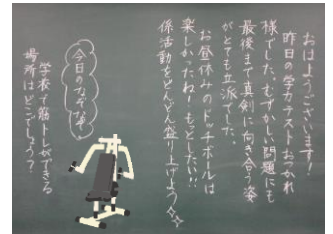 おはようございます!
昨日の学力テストおつかれ
様でした。むずかしい問題にも
最後まで真剣に向き合う姿
がとても立派でした。
お昼休みのドッチボールは
楽しかったね!もっとしたい!!
係活動をどんどん盛り上げよう
今日のなぞなぞ
学校で筋トレができる
場所はどこでしょう?